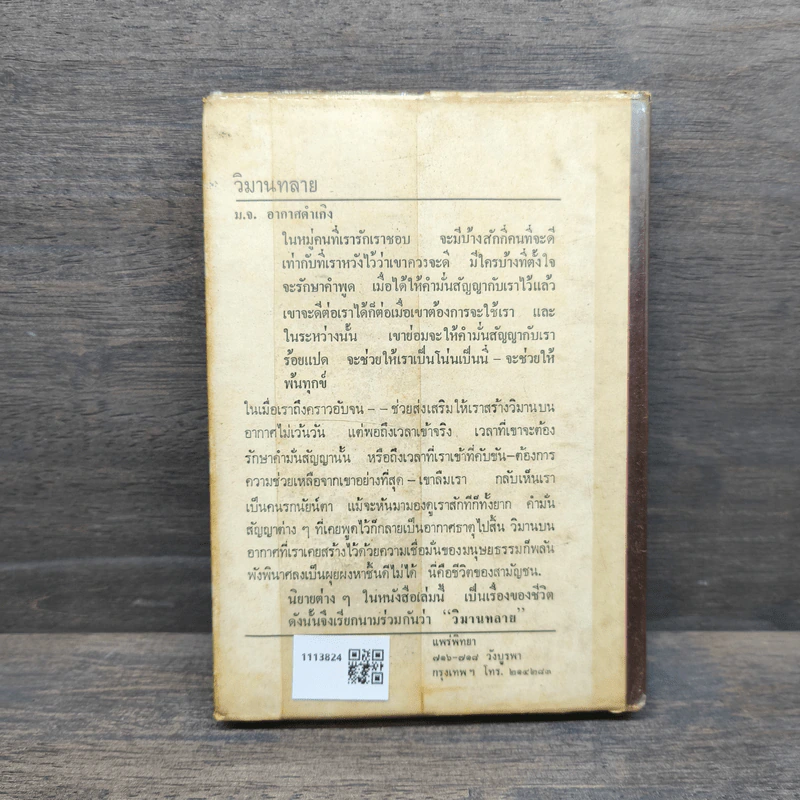 วิมานทลาย
ม.จ. อากาศดำเกิง
ในหมู่คนที่เรารักเราชอบ จะมีบ้างสักกี่คนที่จะดี
เท่ากับที่เราหวังไว้ว่าเขาควรจะดี มีใครบ้างที่ตั้งใจ
จะรักษาคำพูด เมื่อได้ให้คำมั่นสัญญากับเราไว้แล้ว
เขาจะดีต่อเราได้ก็ต่อเมื่อเขาต้องการจะใช้เรา และ
ในระหว่างนั้น เขาย่อมจะให้คำมั่นสัญญากับเรา
ร้อยแปด จะช่วยให้เราเป็นโน่นเป็นนี่ – จะช่วยให้
พ้นทุกข์
ในเมื่อเราถึงคราวอับจน – – ช่วยส่งเสริมให้เราสร้างวิมานบน
อากาศไม่เว้นวัน แต่พอถึงเวลาเข้าจริง เวลาที่เขาจะต้อง
รักษาคำมั่นสัญญานั้น หรือถึงเวลาที่เราเข้าที่คับขัน–ต้องการ
ความช่วยเหลือจากเขาอย่างที่สุด – เขาลืมเรา กลับเห็นเรา
เป็นคนรกนัยน์ตา แม้จะหันมามองดูเราสักทีก็ทั้งยาก คำมั่น
สัญญาต่าง ๆ ที่เคยพูดไว้ก็กลายเป็นอากาศธาตุไปสิ้น วิมานบน
อากาศที่เราเคยสร้างไว้ด้วยความเชื่อมั่นของมนุษยธรรมก็พลัน
พังพินาศลงเป็นผุยผงหาชิ้นดีไม่ได้ นี่คือชีวิตของสามัญชน.
นิยายต่าง ๆ ในหนังสือเล่มนี้ เป็นเรื่องของชีวิต
ดังนั้นจึงเรียกนามร่วมกันว่า “วิมานทลาย”
แพร่พิทยา
๗๑๖–๗๑๘ วังบูรพา
กรุงเทพ ฯ โทร. ๒๑๔๒๘๓
1113824